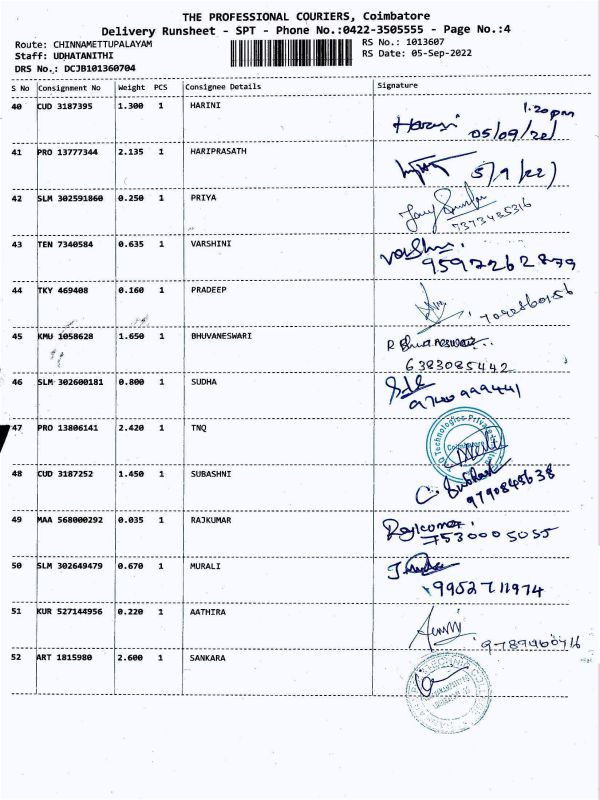 THE PROFESSIONAL COURIERS, Coimbatore
Delivery Runsheet - SPT - Phone No.:0422-3505555 - Page No.:4
Route: CHINNAMETTUPALAYAM RS No.: 1013607
Staff: UDHATANITHI RS Date: 05-Sep-2022
DRS No.: DCJB101360704
S No Consignment No Weight PCS Consignee Details Signature
40 CUD 3187395 1.300 1 HARINI
1.20pm
05/09/22
41 PRO 13777344 2.135 1 HARIPRASATH
5/9/22
42 SLM 302591860 0.250 1 PRIYA
7373485316
43 TEN 7340584 0.635 1 VARSHINI
Varshini
9597262879
44 TKY 469408 0.160 1 PRADEEP
45 KMU 1058628 1.650 1 BHUVANESWARI
R Bhuvaneswari
6383085442
46 SLM 302600181 0.800 1 SUDHA
47 PRO 13806141 2.420 1 TNQ
Technologies Private
Coimbatore
48 CUD 3187252 1.450 1 SUBASHNI
49 MAA 568000292 0.035 1 RAJKUMAR
Rajkumar
7530005055
50 SLM 302649479 0.670 1 MURALI
9952711974
51 KUR 527144956 0.220 1 AATHIRA
9789460716
52 ART 1815980 2.600 1 SANKARA